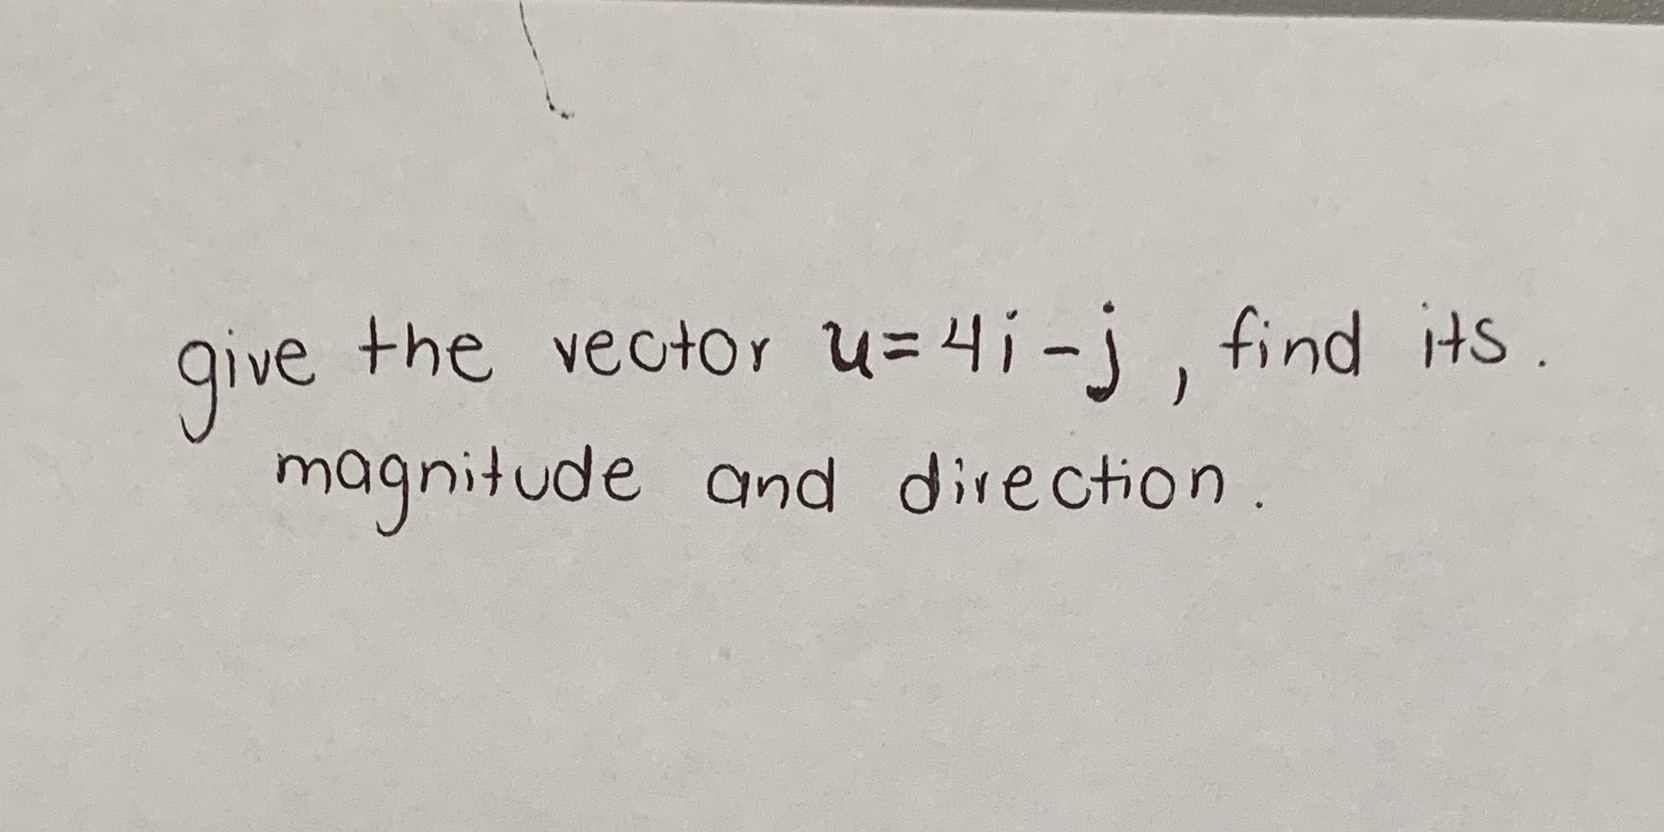 give the vector u=4i-j, find its.
magnitude and direction.